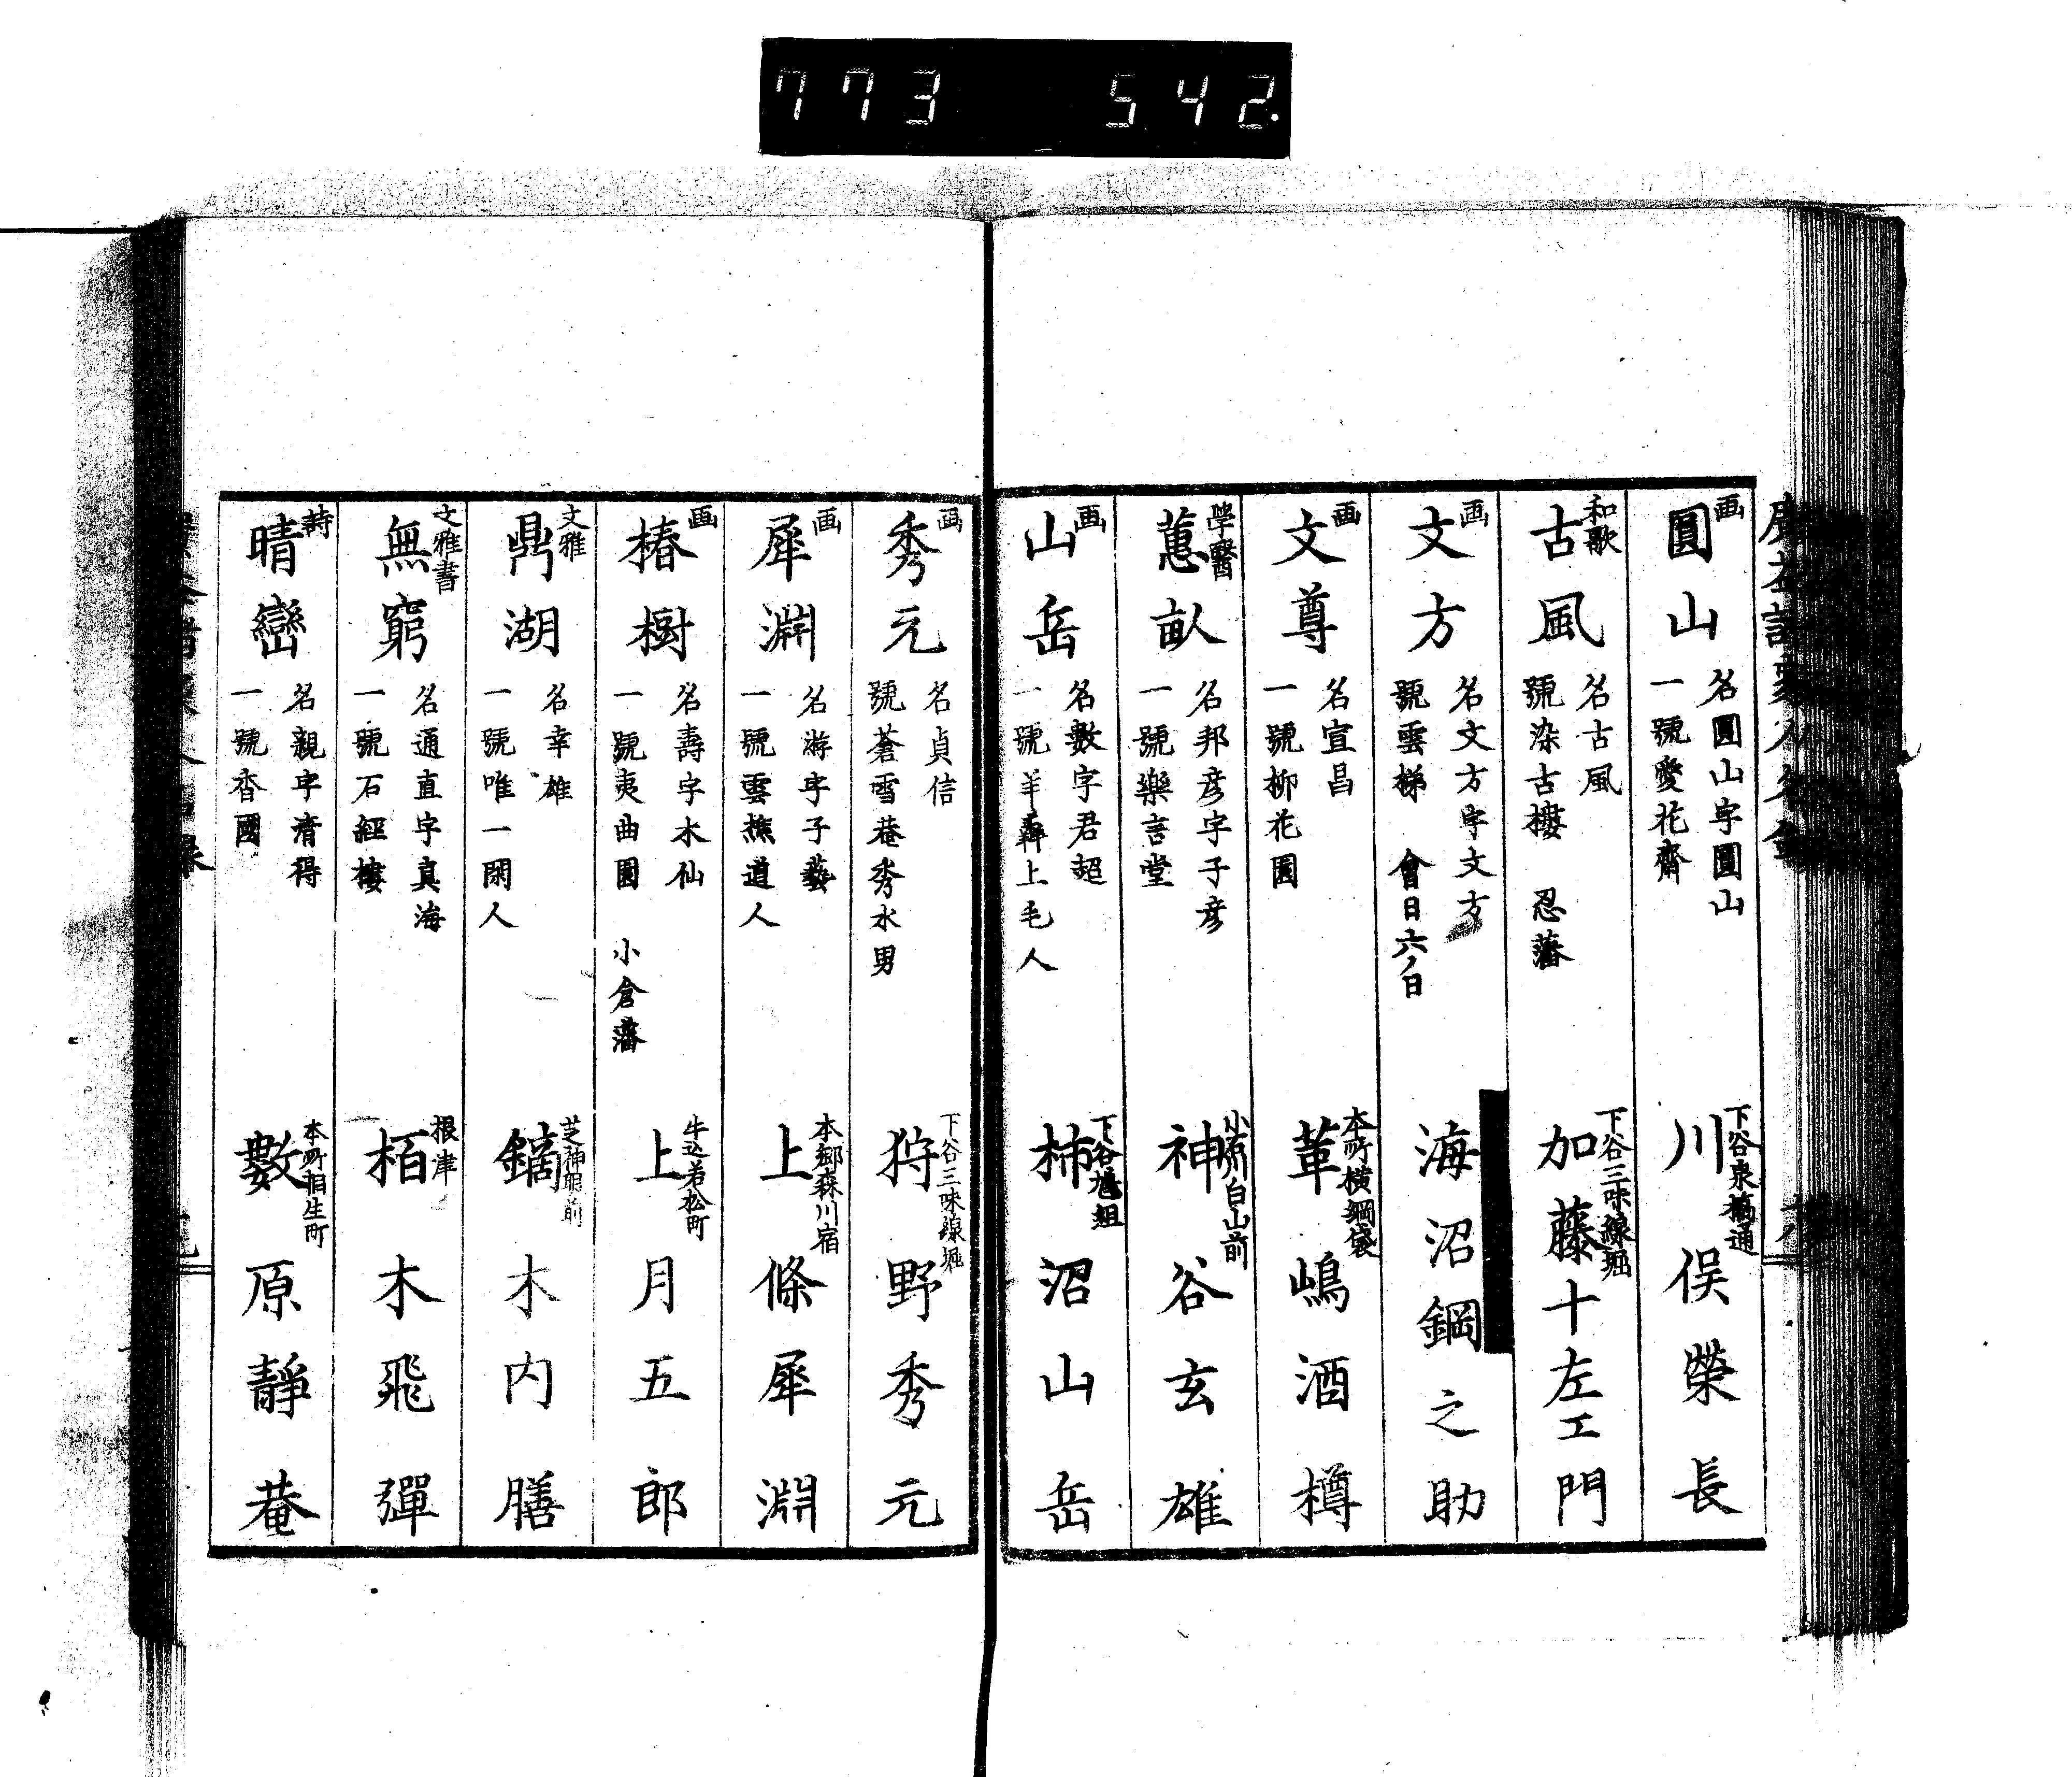 773 542
画
圓山
名圓山字圓山
一號愛花齋
下谷泉橋通
川俣榮長
和歌
古風
名古風
號染古樓 忍藩
下谷三味線堀
加藤十左エ門
画
文方
名文方字文方
號雲梯 會日六ノ日
海沼鋼之助
画
文尊
名宜昌
一號柳花園
本所横網袋
葦嶋酒樽
學醫
蕙畝
名邦彦字子彦
一號樂言堂
白山前
神谷玄雄
画
山岳
名數字君超
一號羊群上毛人
下谷組
柿沼山岳
画
秀元
名貞信
號蒼雪菴秀水男
下谷三味線堀
狩野秀元
画
犀淵
名游字子藝
一號雲樵道人
本郷森川宿
上條犀淵
画
椿樹
名壽字木仙
一號夷曲園 小倉藩
牛込若松町
上月五郎
文雅
鼎湖
名幸雄
一號唯一閑人
芝神明前
鏑木内膳
文雅書
無窮
名通直字真海
一號石經樓
根津
栢木飛彈
詩
晴巒
名親字清得
一號香國
本所相生町
藪原靜菴